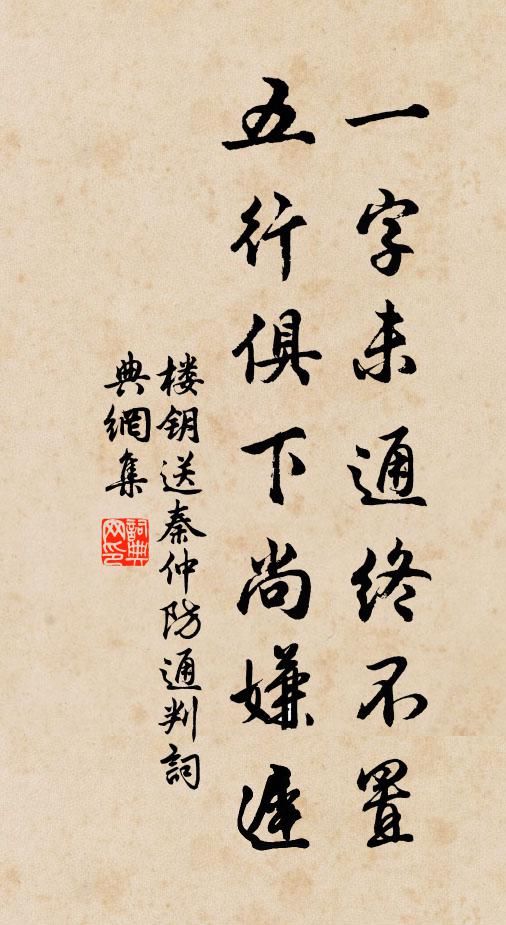 一字未通终不置
五行俱下尚嫌遲
楼钥送秦仲防通判詞
典網集
詞典网印